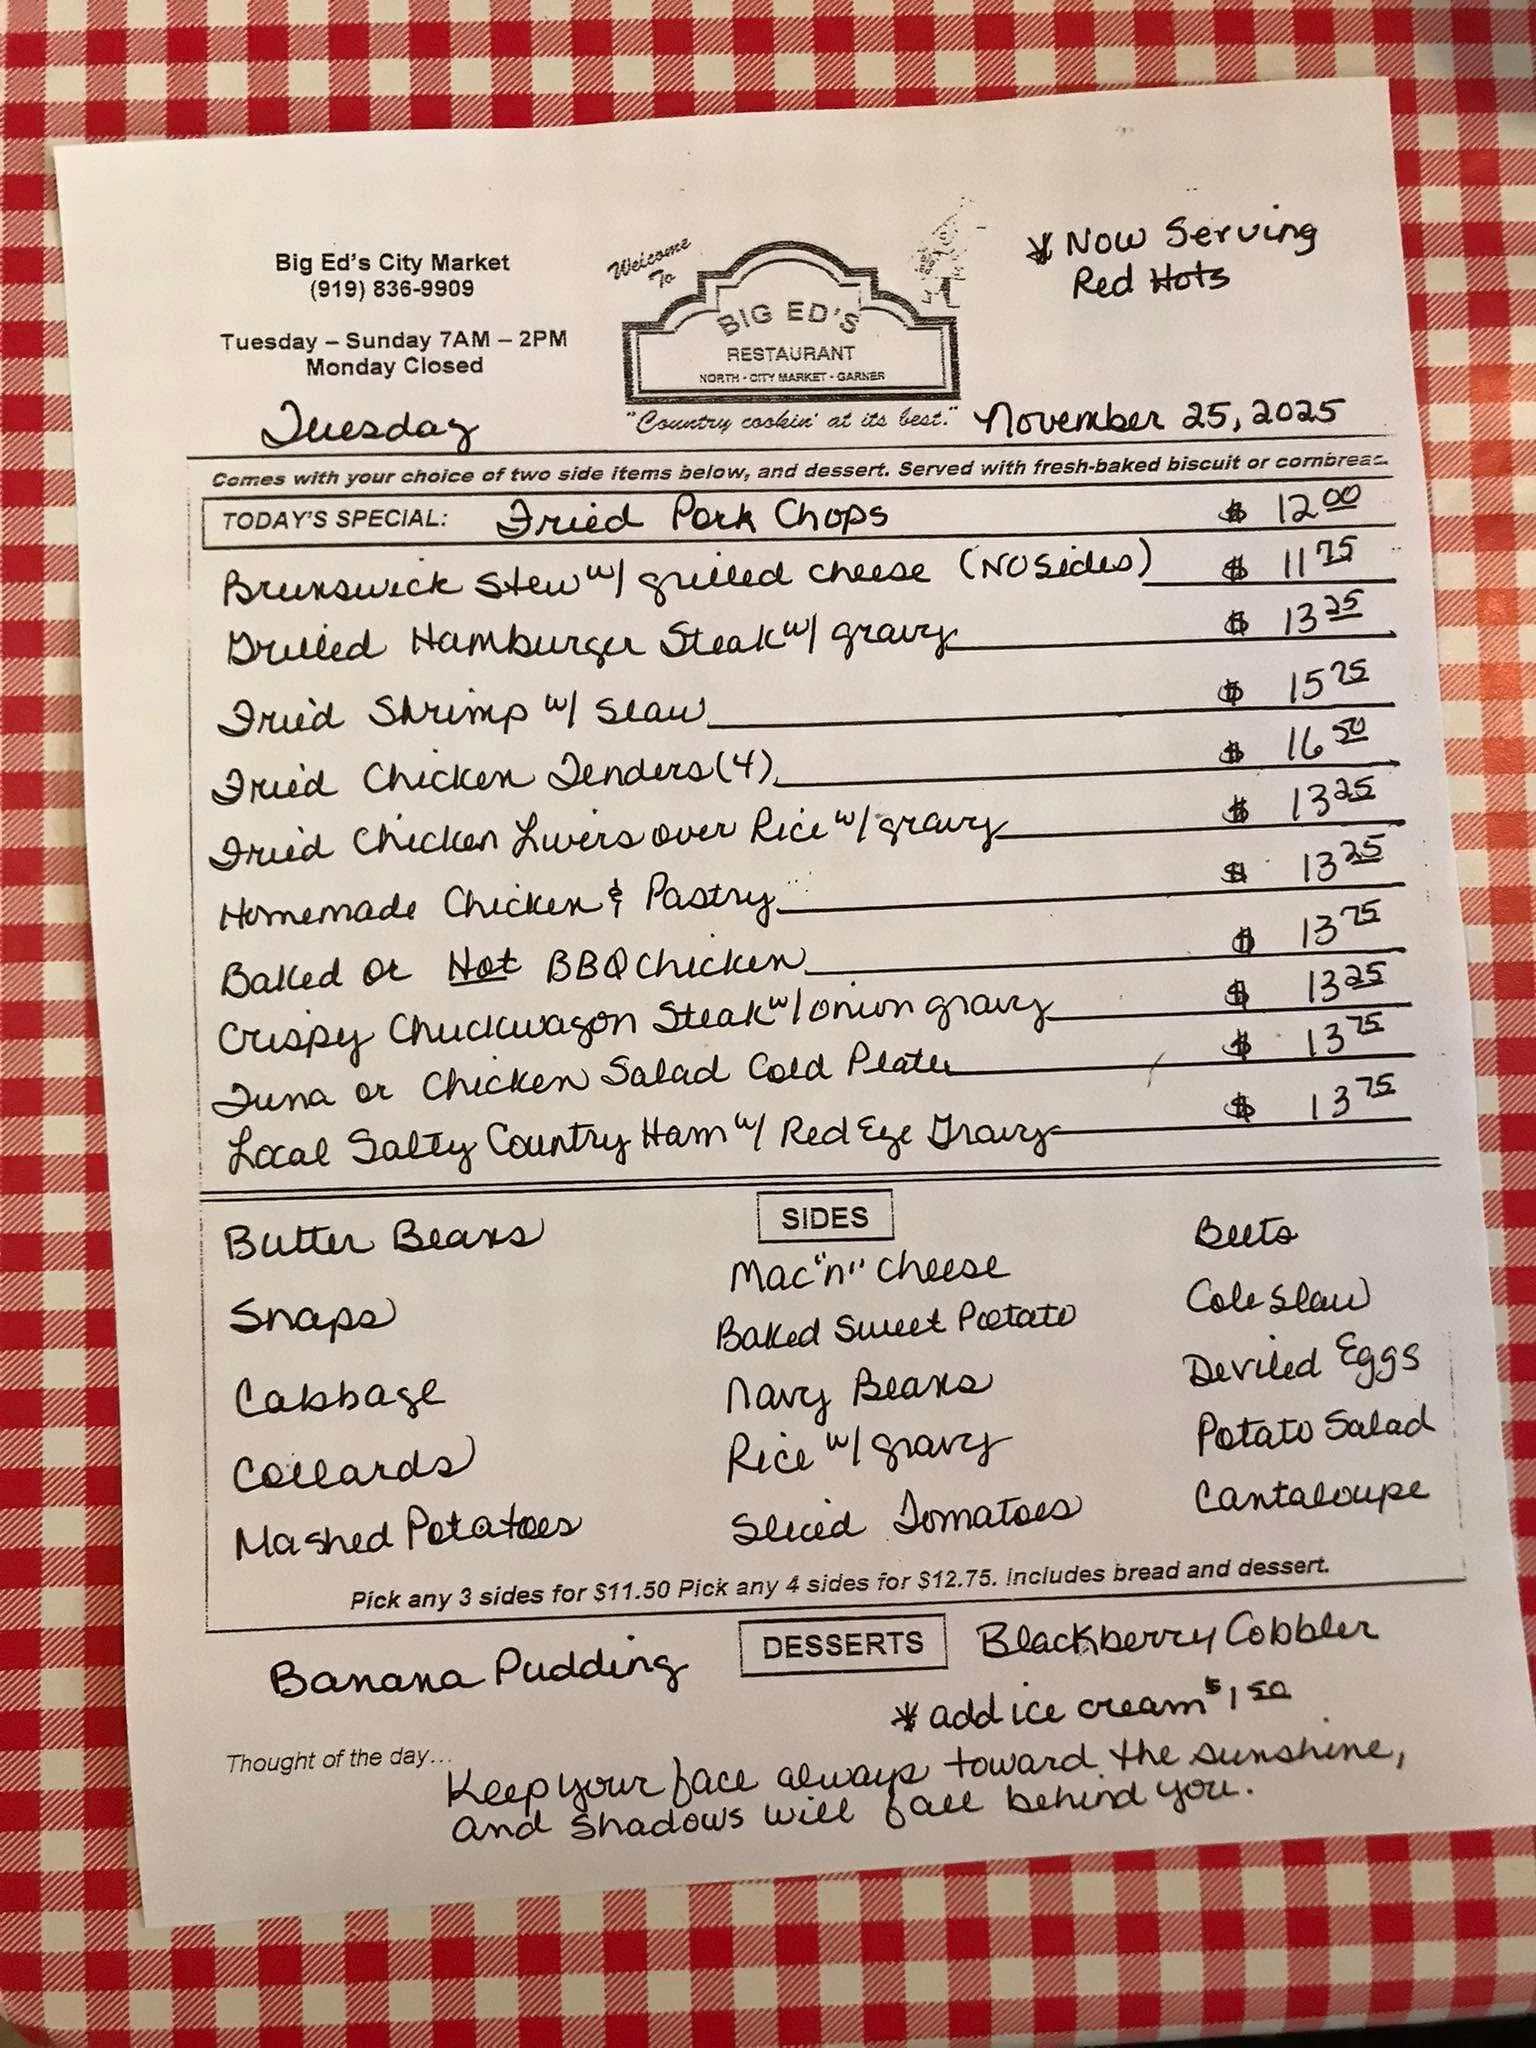 Big Ed's City Market
(919) 836-9909
Tuesday – Sunday 7AM – 2PM
Monday Closed
Welcome
To
BIG ED'S
RESTAURANT
NORTH - CITY MARKET - GARNER
"Country cookin' at its best."
* Now Serving
Red Hots
Tuesday
November 25, 2025
Comes with your choice of two side items below, and dessert. Served with fresh-baked biscuit or cornbread.
TODAY'S SPECIAL: Fried Pork Chops $ 12.00
Brunswick Stew w/ grilled cheese (No sides) $ 11 75
Grilled Hamburger Steak w/ gravy $ 13 25
Fried Shrimp w/ slaw $ 15 75
Fried Chicken Tenders (4) $ 16 50
Fried Chicken Livers over Rice w/ gravy $ 13 25
Homemade Chicken & Pastry $ 13 25
Baked or Hot BBQ Chicken $ 13 75
Crispy Chuckwagon Steak w/ onion gravy $ 13 25
Tuna or Chicken Salad Cold Plate $ 13 75
Local Salty Country Ham w/ Red Eye Gravy $ 13 75
SIDES
Butter Beans
Snaps
Cabbage
Collards
Mashed Potatoes
Mac "n" Cheese
Baked Sweet Potato
Navy Beans
Rice w/ gravy
Sliced Tomatoes
Beets
Cole Slaw
Deviled Eggs
Potato Salad
Cantaloupe
Pick any 3 sides for $11.50 Pick any 4 sides for $12.75. Includes bread and dessert.
DESSERTS
Banana Pudding
Blackberry Cobbler
* add ice cream $1 50
Thought of the day... Keep your face always toward the sunshine,
and shadows will fall behind you.